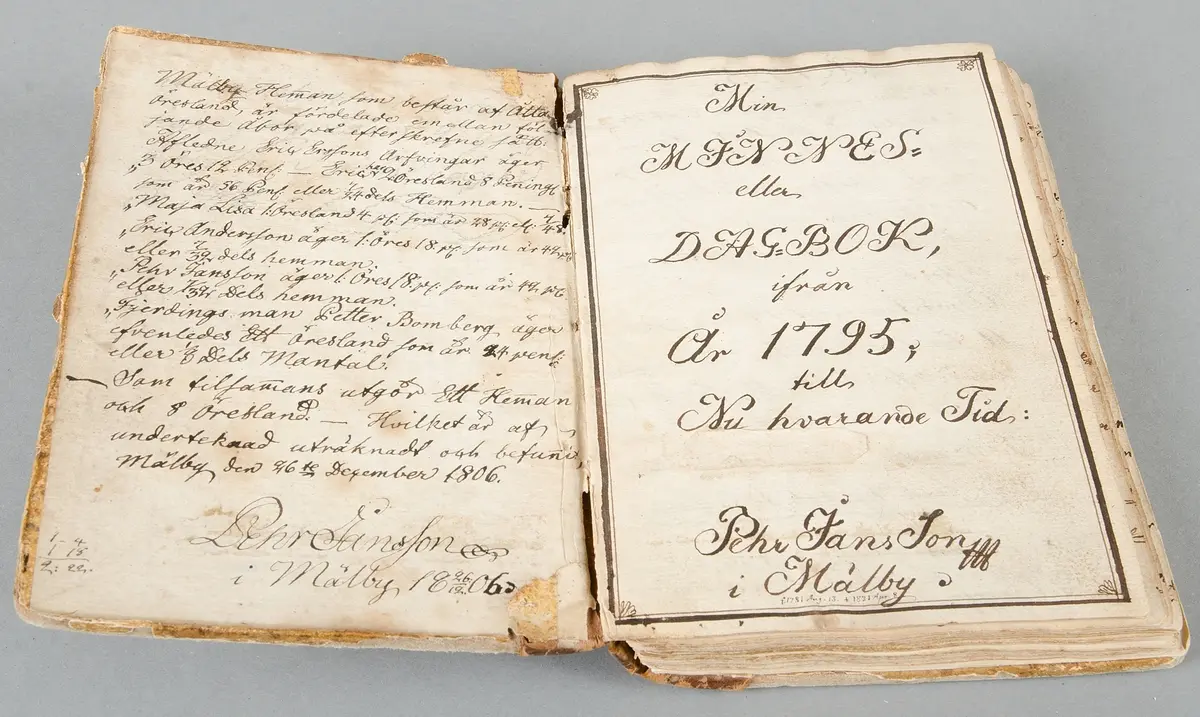 Mälby Heman som består af Åtta
öresland, är fördelade emellan föl-
jande Åbor på efterskrefne sätt.
Afledne Eric Erssons Arfvingar äger
3 Öres 12 Penf. — Eric öresland 8 Pening
som är 56 Penf. eller dels Hemman. —
Maja Lisa 1: Öresland 4 pf: som är 28 pf: el: 7/48.
Eric Andersson äger 1: Öres 18 pf. som är 42 pf
eller 7/32 dels hemman.
Pehr Jansson äger 1: Öres 18 pf: som är 42 pf
eller 7/32 Dels hemman.
Fjerdings man Petter Bomberg äger
efvenledes Ett öresland som är 24 penf:
eller 1/8 dels Mantal.
Som tilsamans utgör Ett Heman
och 8 Öresland. — Hvilket är af
undertecknad uträknadt och befunnit,
Mälby den 26te December 1806.
Pehr Jansson
i Mälby 18 26/12 06.
1 - 4
1 - 18
2: 22.
Min
MINNES=
eller
DAG=BOK,
ifrån
År 1795;
till
Nu hvarande Tid:
Pehr Jans Son
i Mälby.